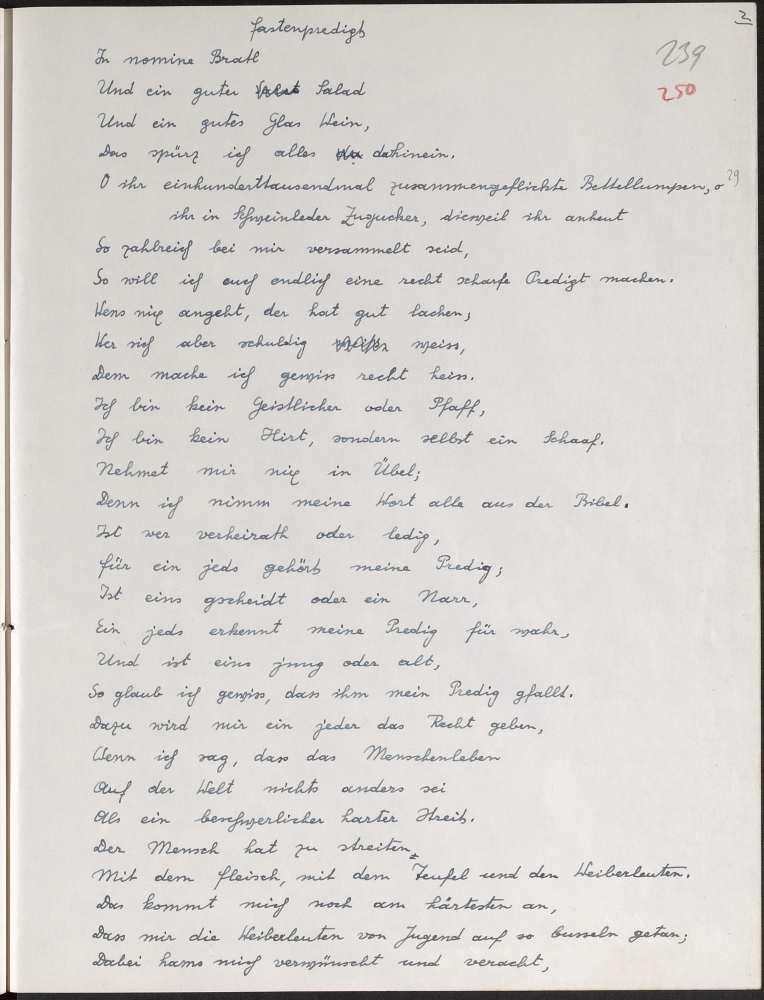 2
Fastenpredigt
239
In nomine Bratl
Und ein guter Salad
250
Und ein gutes Glas Wein,
Das spürz ich alles dahinein.
O ihr einhunderttausendmal zusammengeflickte Bettellumpen, o
29
ihr in Schweinleder Zuzucker, dieweil ihr anheut
So zahlreich bei mir versammelt seid,
So will ich euch endlich eine recht scharfe Predigt machen.
Wens nix angeht, der hat gut lachen;
Wer sich aber schuldig weiss,
Dem mache ich gewiss recht heiss.
Ich bin kein Geistlicher oder Pfaff,
Ich bin kein Hirt, sondern selbst ein Schaaf.
Nehmet mir nix in Übel;
Denn ich nimm meine Wort alle aus der Bibel.
Ist wer verheirath oder ledig,
Für ein jeds gehört meine Predig;
Ist eins gscheidt oder ein Narr,
Ein jeds erkennt meine Predig für wahr,
Und ist eins jung oder alt,
So glaub ich gewiss, dass ihm mein Predig gfallt.
Dazu wird mir ein jeder das Recht geben,
Wenn ich sag, dass das Menschenleben
Auf der Welt nichts anders sei
Als ein beschwerlicher harter Streit.
Der Mensch hat zu streiten
Mit dem Fleisch, mit dem Teufel und den Weiberleuten.
Das kommt mich noch am härtesten an,
Dass mir die Weiberleuten von Jugend auf so busseln getan;
Dabei hams mich verwünscht und veracht,